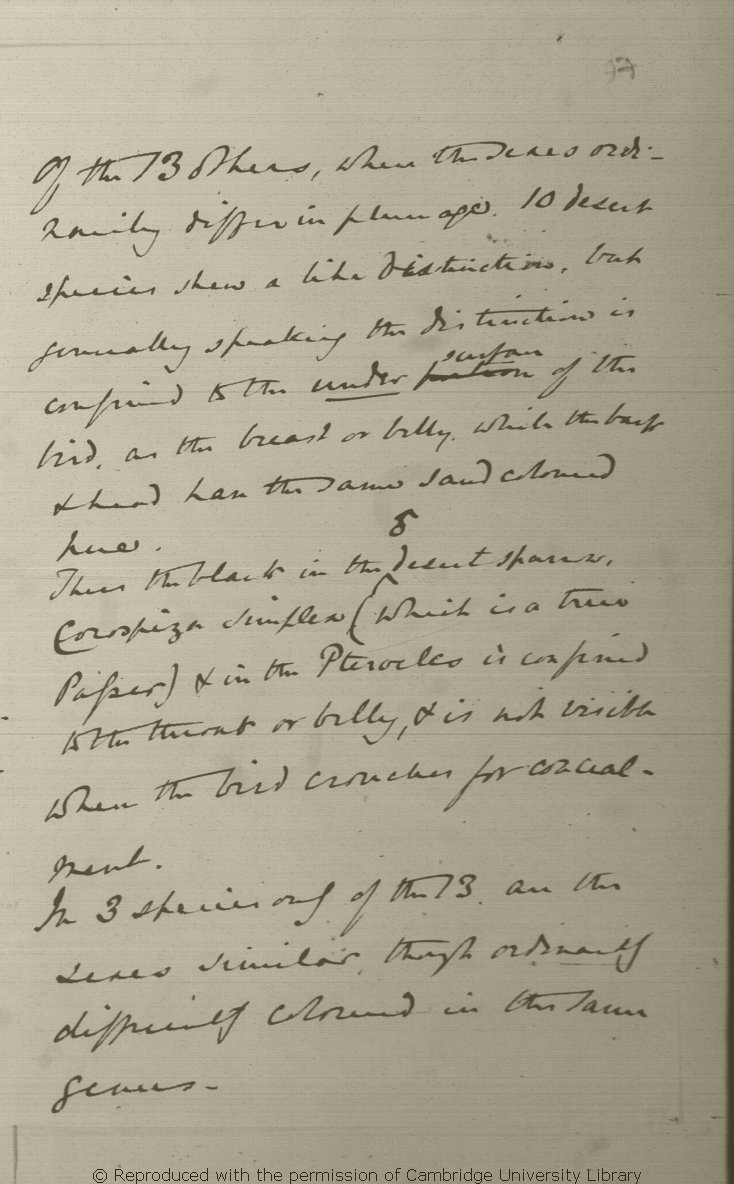 97
Of the 13 others, when the sexes ordi-
narily differ in plumage, 10 desert
species shew a like distinction, but
generally speaking the distinction is
surface
confined to the under portion of the
bird, as the breast or belly, while the back
& head have the same sand coloured
hue.
8
Thus the black in the desert sparrow,
Corospiza simplex (which is a true
Passer) & in the Pterocles is confined
to the throat or belly, & is not visible
when the bird crouches for conceal-
ment.
In 3 species only of the 13 are the
sexes similar, though ordinarily
differently coloured in the same
genus -
© Reproduced with the permission of Cambridge University Library